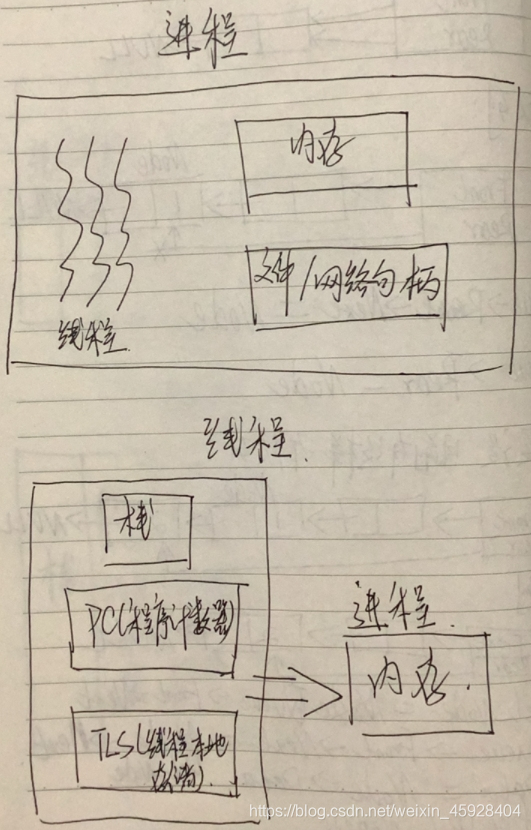 进程
内存
文件/网络句柄
线程
线程.
栈
PC(程序计数器)
进程.
内存.
TLS(线程本地
存储).
https://blog.csdn.net/weixin_45928404